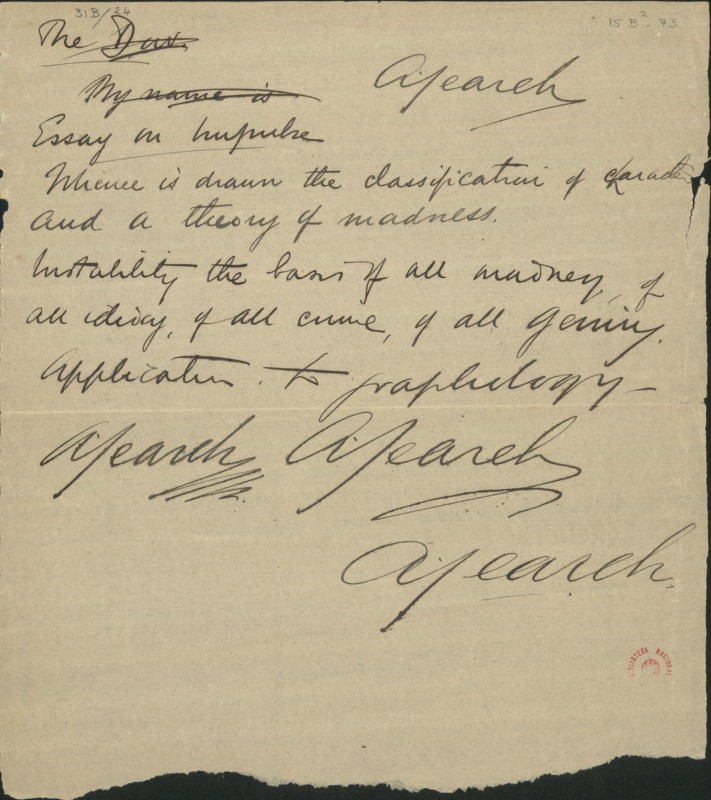 31B/24
15 B²-73
The Dav.
ASearch
My name is
Essay on Impulse
Whence is drawn the classification of character
and a theory of madness.
Instability the basis of all madness, of
all idiocy, of all crime, of all genius.
Application to graphology—
ASearch ASearch
ASearch.
BIBLIOTECA NACIONAL